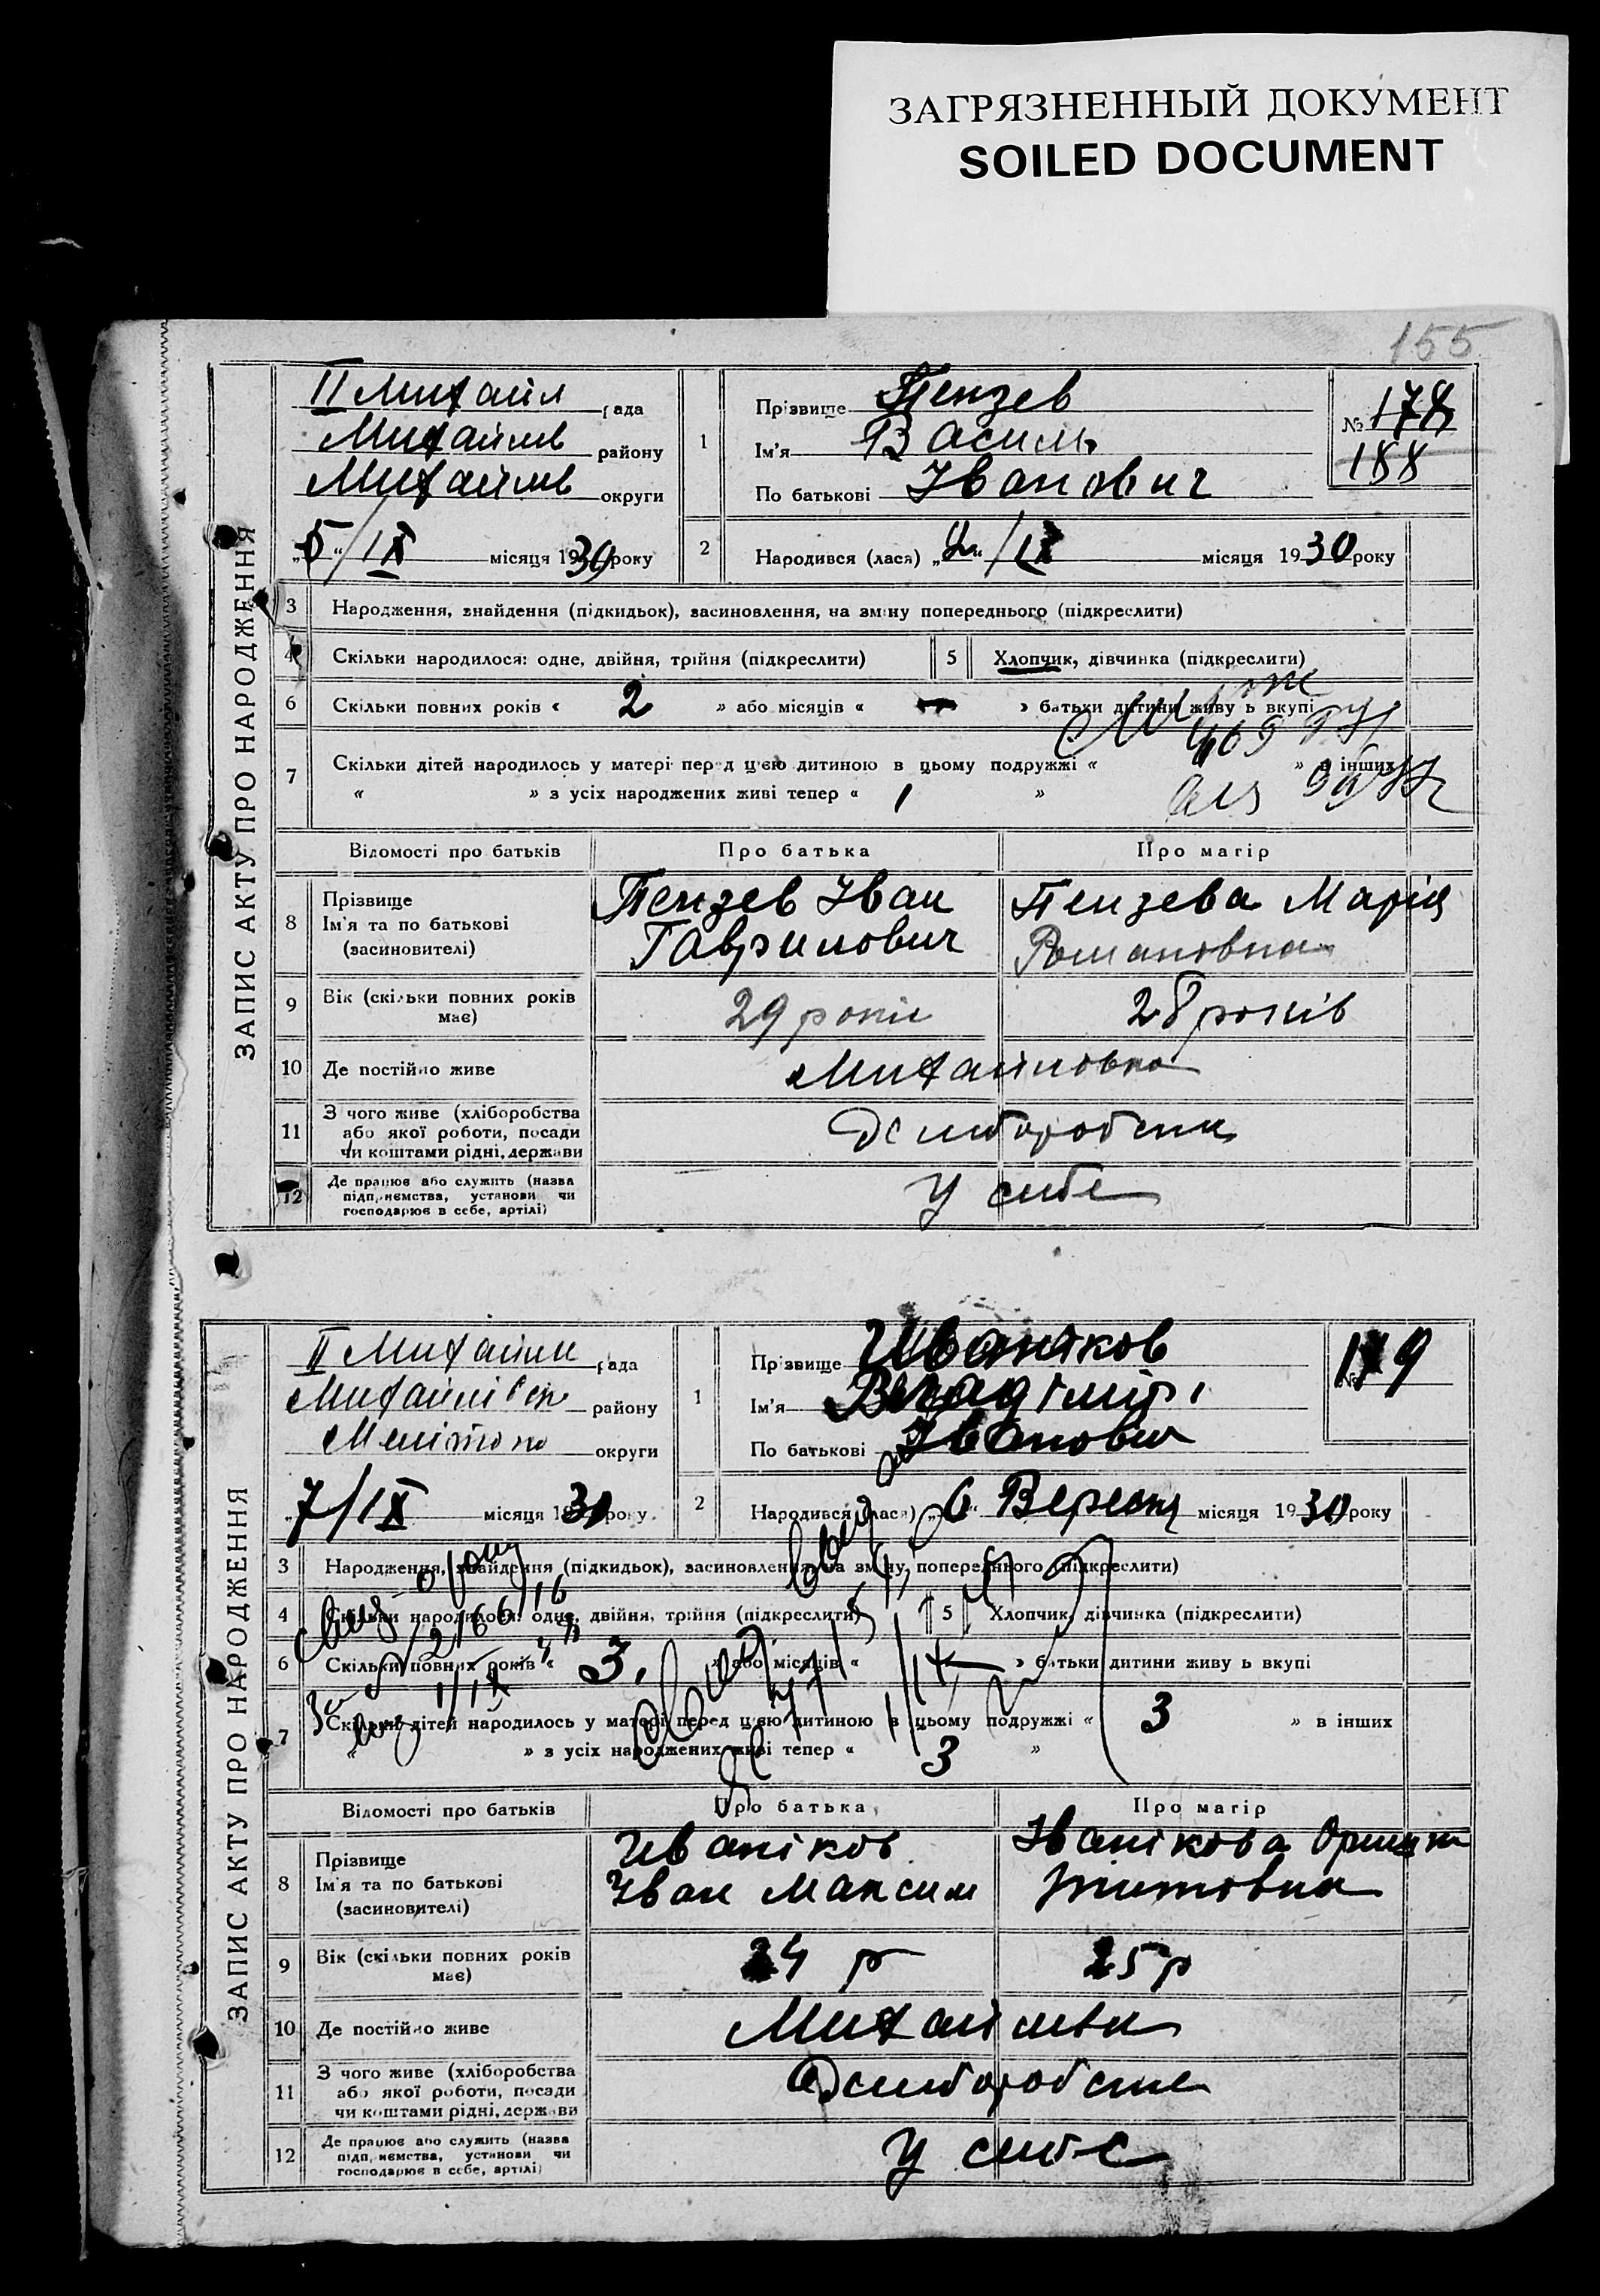 ЗАГРЯЗНЕННЫЙ ДОКУМЕНТ
SOILED DOCUMENT
155
ЗАПИС АКТУ ПРО НАРОДЖЕННЯ
II Михайл рада
Михайлів району
Михайлів округи
„5“/IX місяця 1930 року
1
Прізвище Пензев
Ім'я Василь
По батькові Іванович
№ 178
188
2
Народився (лася) „ “/IX місяця 1930 року
3 Народження, знайдення (підкидьок), засиновлення, на зміну попереднього (підкреслити)
4 Скільки народилося: одне, двійня, трійня (підкреслити) 5 Хлопчик, дівчинка (підкреслити)
6 Скільки повних років « 2 » або місяців « — » батьки дитини живуть вкупі
7 Скільки дітей народилось у матері перед цією дитиною в цьому подружжі « » в інших
« » з усіх народжених живі тепер « 1 »
Відомості про батьків Про батька Про матір
8 Прізвище
Ім'я та по батькові
(засиновителі)
Пензев Іван
Гаврилович
Пензева Марія
Романовна
9 Вік (скільки повних років
має)
29 років
28 років
10 Де постійно живе
Михайловка
11 З чого живе (хліборобства
або якої роботи, посади
чи коштами рідні, держави
12 Де працює або служить (назва
підприємства, установи чи
господарює в себе, артілі)
У себе
ЗАПИС АКТУ ПРО НАРОДЖЕННЯ
II Михайл рада
Михайлівск району
Меліtопо округи
7/IX місяця 1930 року
1
Прізвище Иваніков
Ім'я Владімір
По батькові Іванович
№ 179
2
Народився (лася) „6“ Вересня місяця 1930 року
3 Народження, знайдення (підкидьок), засиновлення, на зміну попереднього (підкреслити)
4 Скільки народилося: одне, двійня, трійня (підкреслити) 5 Хлопчик, дівчинка (підкреслити)
6 Скільки повних років « 3. » або місяців « — » батьки дитини живуть вкупі
7 Скільки дітей народилось у матері перед цією дитиною в цьому подружжі « 3 » в інших
« » з усіх народжених живі тепер « 3 »
Відомості про батьків Про батька Про матір
8 Прізвище
Ім'я та по батькові
(засиновителі)
Иваніков
Іван Максим
Іванікова
Титовна
9 Вік (скільки повних років
має)
24 р
25 р
10 Де постійно живе
11 З чого живе (хліборобства
або якої роботи, посади
чи коштами рідні, держави
12 Де працює або служить (назва
підприємства, установи чи
господарює в себе, артілі)
У себе